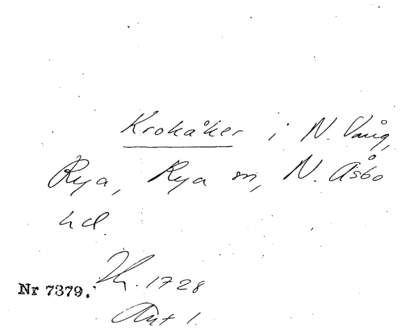 Krokåker i N. Vång,
Rya, Rya sn, N. Åsbo
hd.
Nr 7379. Th. 1728
Akt 1.